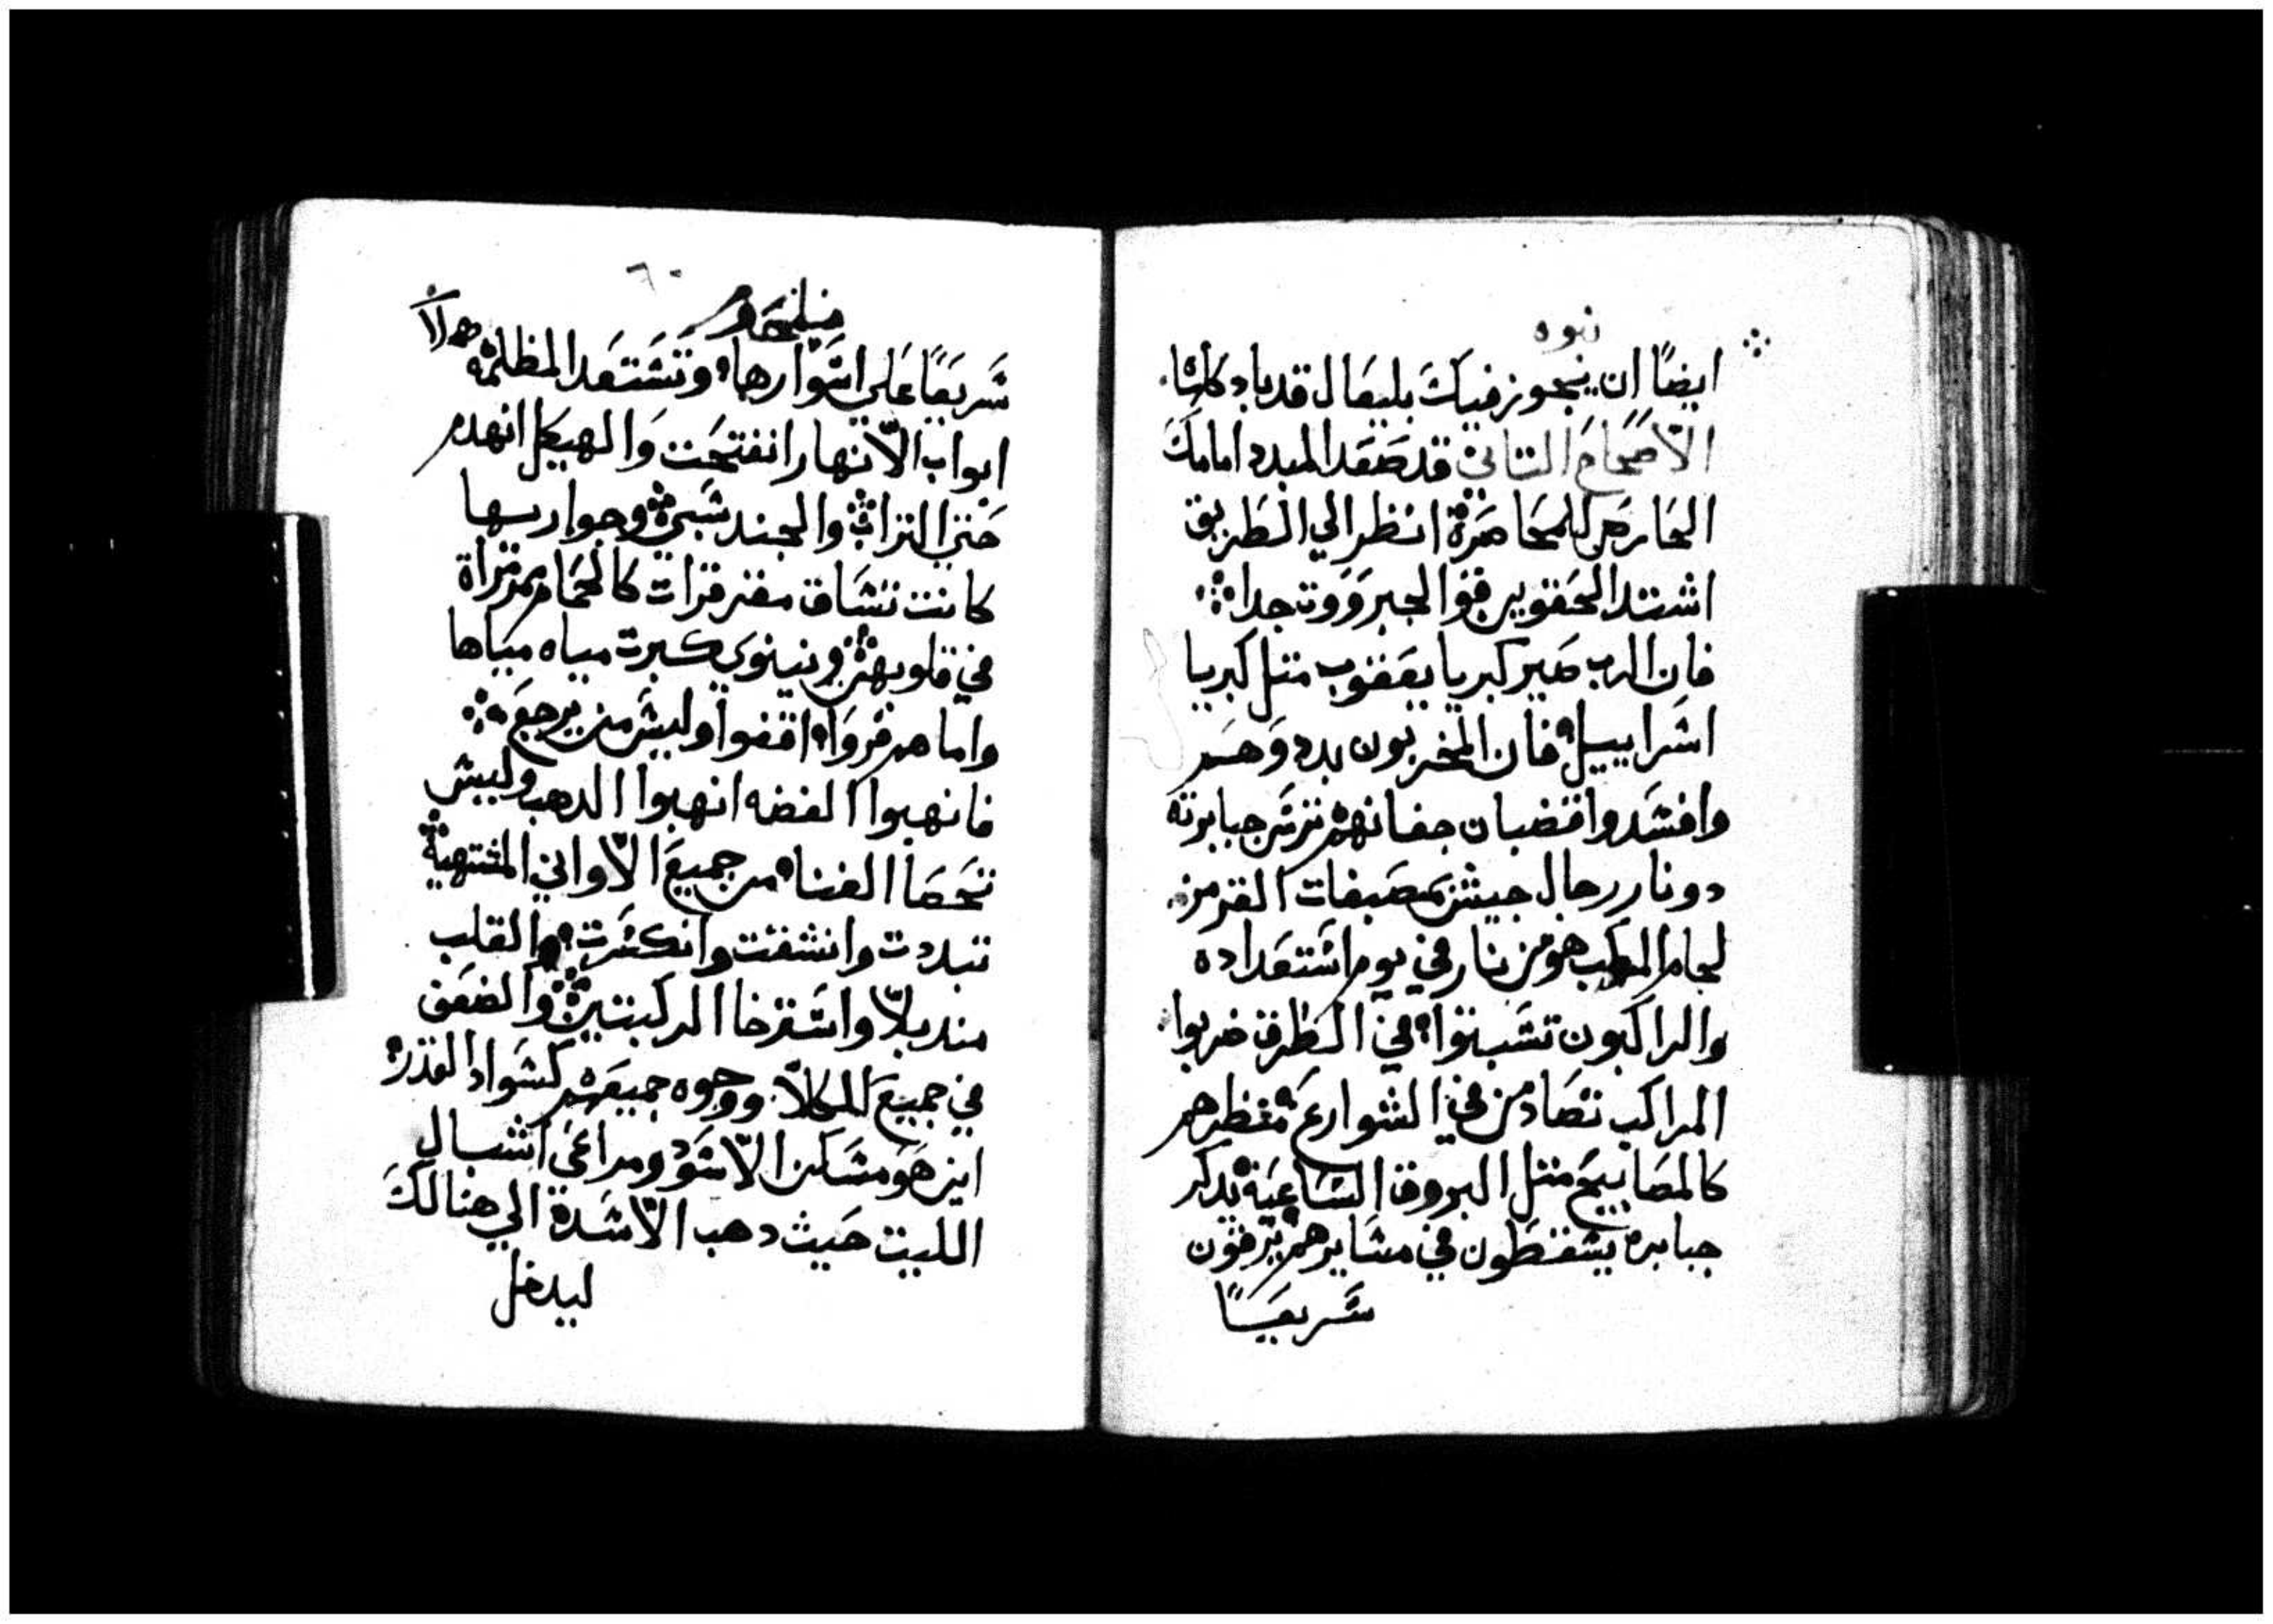 نبوه
ايضًا ان يجوز فيك بليعال قد باد كلتا
الاصحاح التاني قد صعد المبدد امامك
الحارص المحاصرة انظر الي الطريق
اشتد الحقوين قو الجبروت جدا
فان الرب صير كبريا يعقوب متل كبريا
اسراييل فان المخربون بددوهم
وافسدوا قضبان جفانهم ترس جبابرته
دو نار رجال جيش بمصبغات القرمز
لجام المركب هو من نار في يوم استعداده
والراكبون تسبتوا في الطرق ضربوا
المراكب تصادمن في الشوارع منظرهم
كالمصابيح متل البروق الساعية يدكر
جبابره يسقطون في مسايرهم يرقون
سريعًا
منلخوم
٦٠
سريعًا علي اسوارها وتستعد المظله
ابواب الانهار انفتحت والهيكل انهدم
حتي التراب والجند سبي وجواريها
كانت تنساق مقرقرات كالحمام مرمرات
في قلوبهن ونينوي كبرت مياه مياها
واما هم فروا اقفوا وليس من يرجع
فانهبوا الفضه انهبوا الدهب وليس
تحصا الغنا من جميع الاواني المشتهية
تبددت وانشقت وانكسرت والقلب
منديلا واسترخا الركبتين والضعف
في جميع الكلا ووجوه جميعهم كسواد القدر
اين هو مسكن الاسود ومراعي اشبال
الليت حيث دهب الاسد الي هنالك
ليدخل